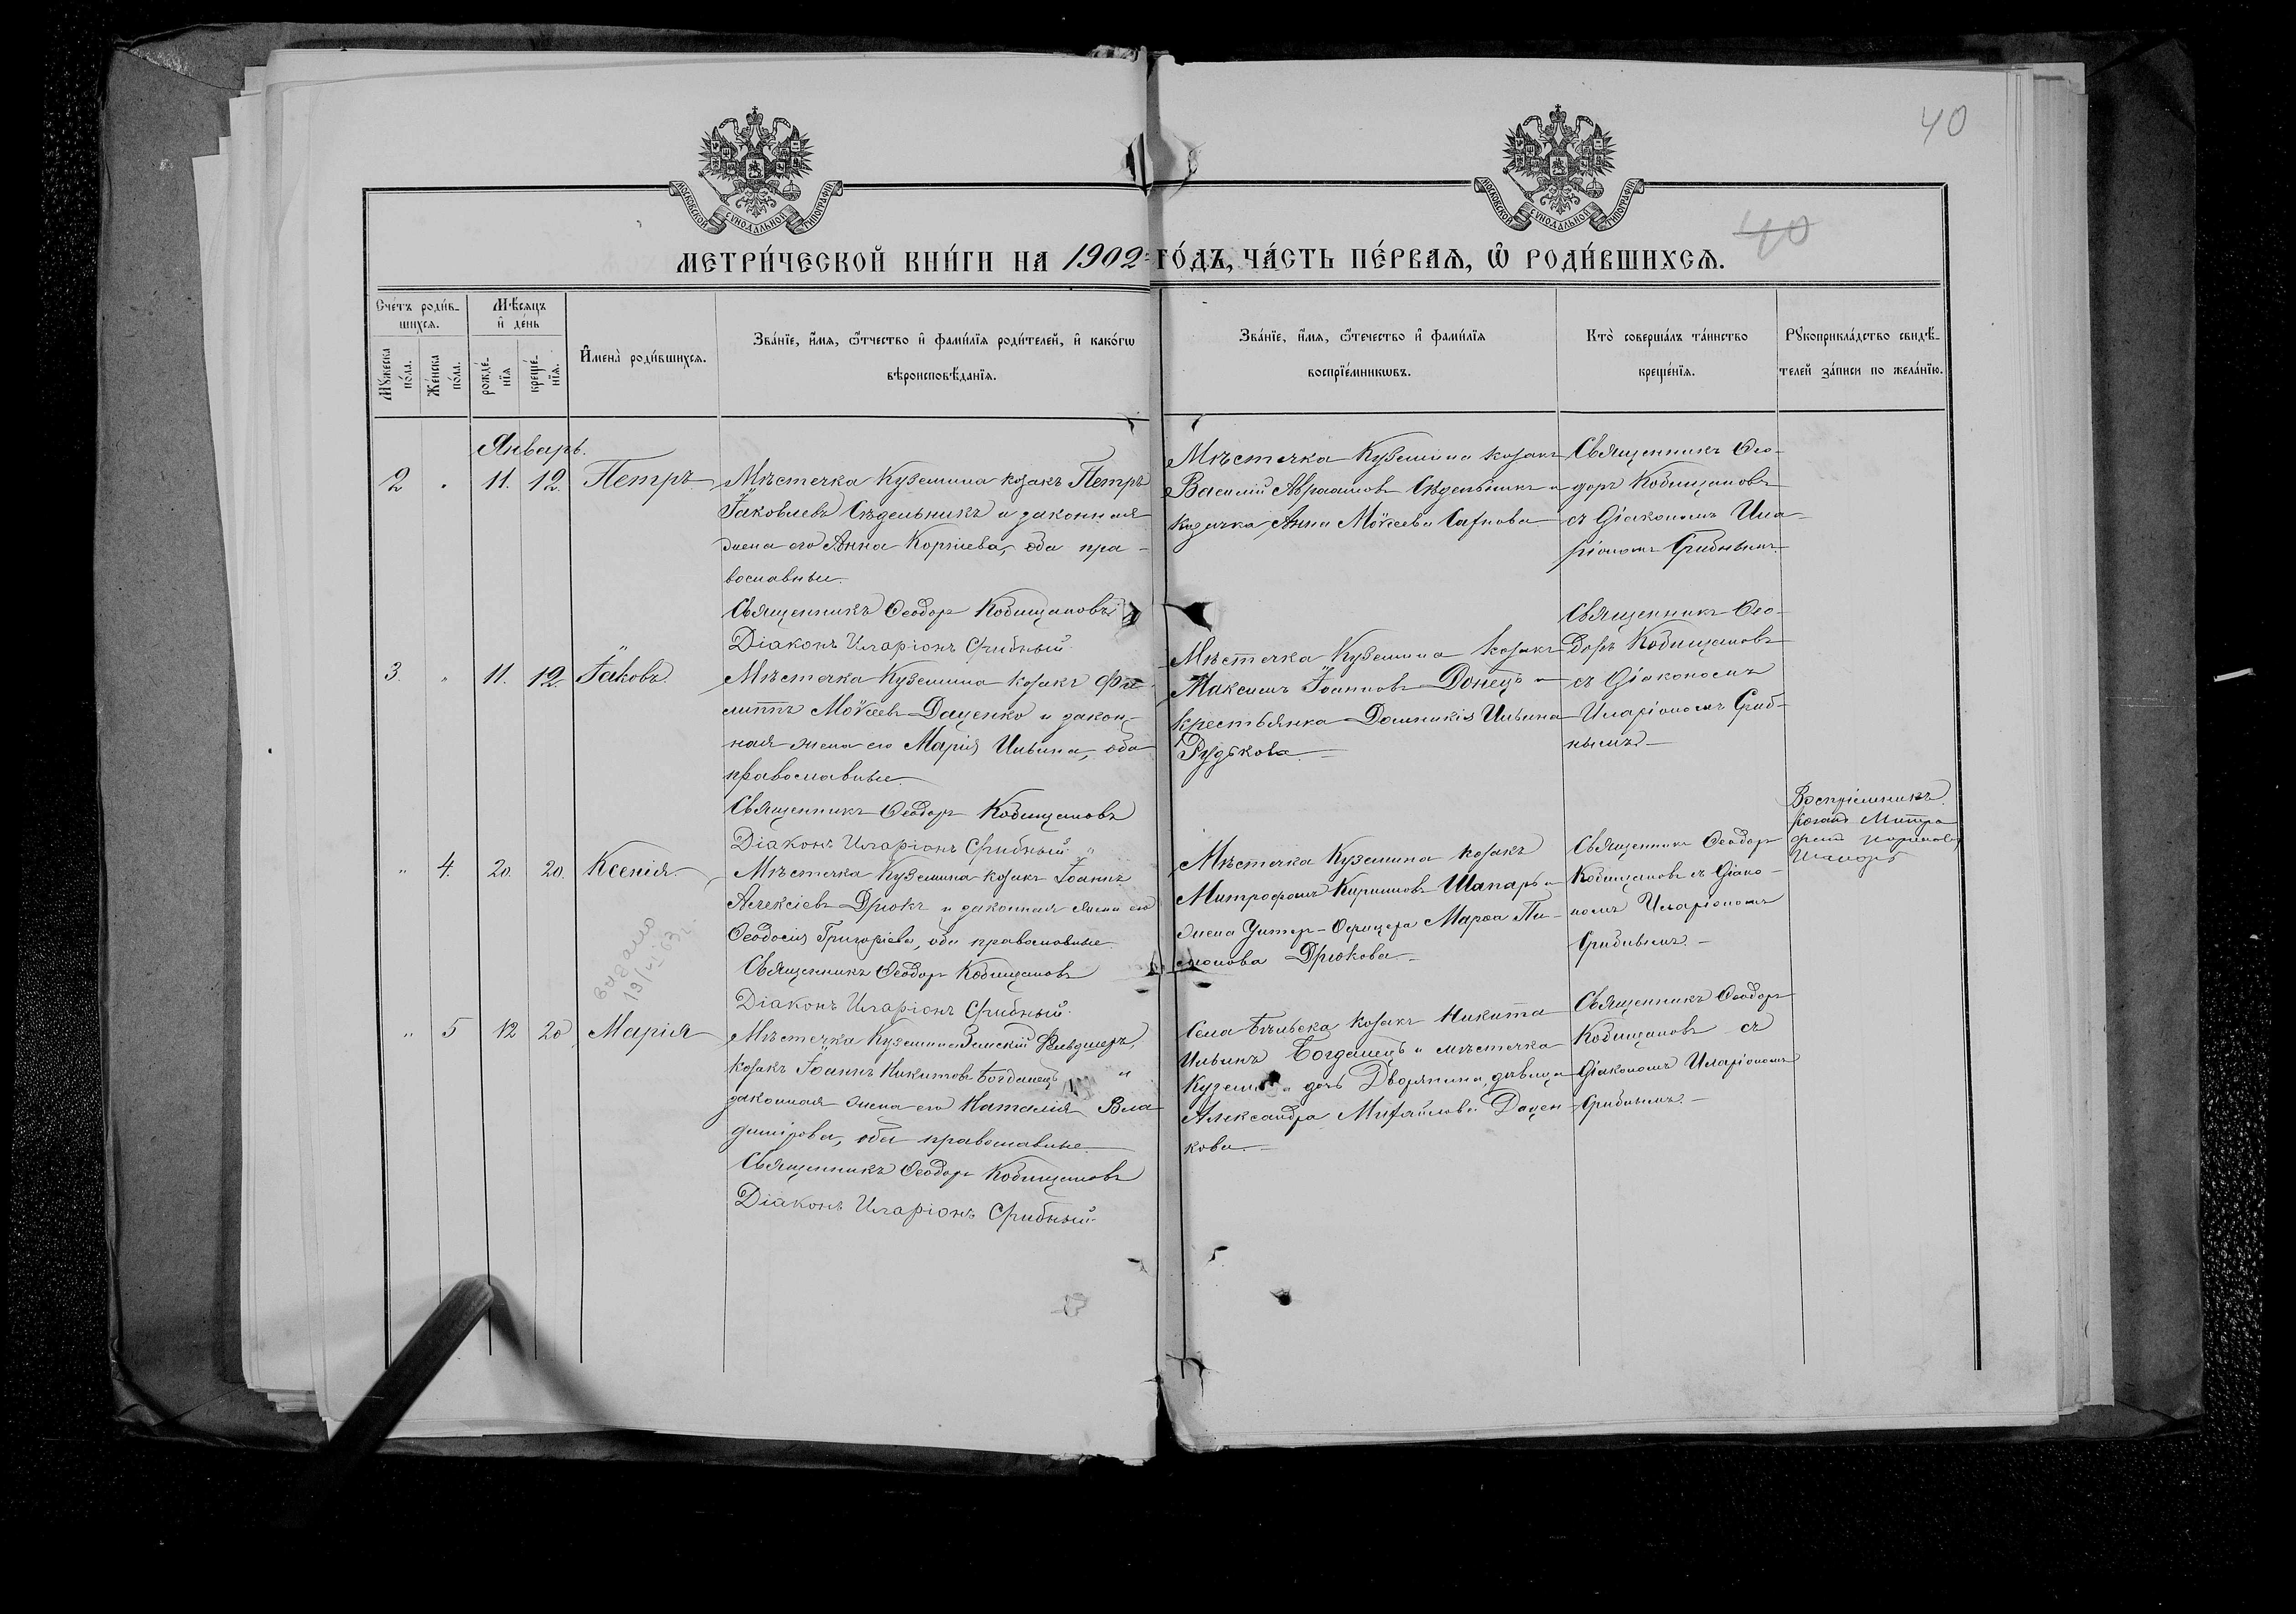 40
МОСКОВСКОЙ СУНОДАЛЬНОЙ ТИПОГРАФІИ
МОСКОВСКОЙ СУНОДАЛЬНОЙ ТИПОГРАФІИ
40
МЕТРИ́ЧЕСКОЙ КНИ́ГИ НА 1902 ГО́ДЪ, ЧА́СТЬ ПЕ́РВАѦ, Ѡ РОДИ́ВШИХСѦ.
Сче́тъ роди́в-
шихся.
Мѣ́сяцъ
и҆ де́нь
Му́жеска
по́ла.
Же́нска
по́ла.
рожде́-
нїя
креще́-
нїя.
И҆мена̀ роди́вшихся.
Зва́нїе, и҆́мя, ѻ҆́тчество и҆ фами́лїя роди́телей, и҆ како́гѡ
вѣроисповѣ́данїя.
Зва́нїе, и҆́мя, ѻ҆те́чество и҆ фами́лїя
воспрїе́мникѡвъ.
Кто̀ соверша́лъ та́инство
креще́нїя.
Рꙋкоприкла́дство свидѣ́-
телей за́писи по жела́нїю.
Январь.
2 " 11. 12. Петръ
Мѣстечка Куземина козакъ Петръ
Іаковлевъ Сѣдельникъ и законная
жена его Анна Корніева, оба пра-
вославные.
Священникъ Ѳеодоръ Кобищановъ
Діаконъ Иларіонъ Срибный
Мѣстечка Куземина козакъ
Василій Авраамовъ Сѣдельникъ и
козачка Анна Моѵсеева
Священникъ Ѳео-
доръ Кобищановъ
съ Діакономъ Ила-
ріономъ Срибнымъ
3. " 11. 12. Іаковъ.
Мѣстечка Куземина козакъ Фи-
липпъ Моѵсеевъ Даценко и закон-
ная жена его Марія Ильина, оба
православные
Священникъ Ѳеодоръ Кобищановъ
Діаконъ Иларіонъ Срибный
Мѣстечка Куземина козакъ
Максимъ Іоанновъ Донецъ и
крестьянка Домникія Ильина
Рудькова.
Священникъ Ѳео-
доръ Кобищановъ
съ Діакономъ
Иларіономъ Сриб-
нымъ
" 4. 20. 20. Ксенія.
Мѣстечка Куземина козакъ Іоаннъ
Алексіевъ Дрюкъ и законная жена его
Ѳеодосія Григоріева, оба православные.
Священникъ Ѳеодоръ Кобищановъ
Діаконъ Иларіонъ Срибный
Мѣстечка Куземина козакъ
Митрофанъ Кириловъ Шапаръ и
жена Унтеръ-Офицера Марѳа
Дрюкова.
Священникъ Ѳеодоръ
Кобищановъ съ Діако-
номъ Иларіономъ
Срибнымъ.
Воспріемникъ
козакъ Митро
Шапоръ
видано
19/VI 63 г.
" 5 12 20 Марія
Мѣстечка Куземина Земскій Фельдшеръ,
козакъ Іоаннъ Никитовъ Богданецъ и
законная жена его Наталія Вла
димірова, оба православные
Священникъ Ѳеодоръ Кобищановъ
Діаконъ Иларіонъ Срибный
Села Бѣльска козакъ Никита
Ильинъ Богданецъ и мѣстечка
Куземина дочь Дворянина, дѣвица
Александра Михайлова Дацен
кова.
Священникъ Ѳеодоръ
Кобищановъ съ
Діакономъ Иларіономъ
Срибнымъ.